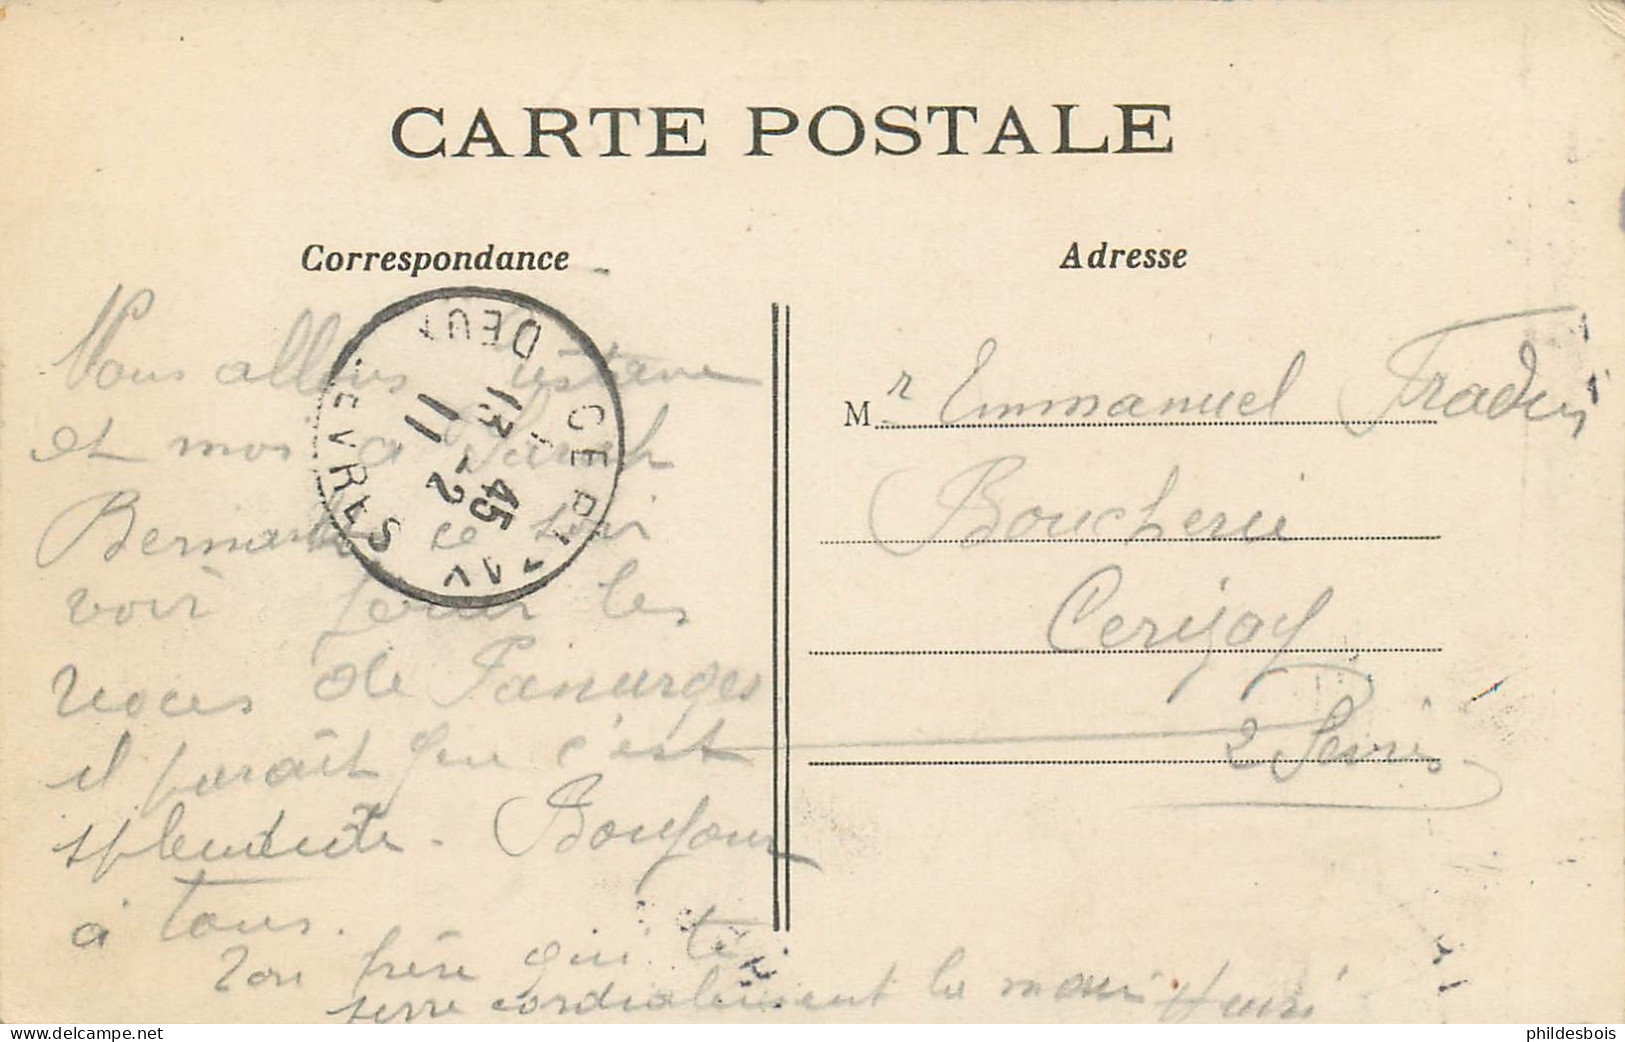 CARTE POSTALE
Correspondance
Adresse
Nous allons Gustave
et moi a Sarah
Bernard ce soir
voir jouer les
noces de Panurges
il parait que c'est
splendide. Bonjour
à tous.
Ton frère qui te
serre cordialement la main Henri
Mr Emmanuel Fradin
Boucherie
Cerizay
2 Sèvres
CERIZAY
13-45
11-2
11
DEUX SEVRES
phildesbois
www.delcampe.net